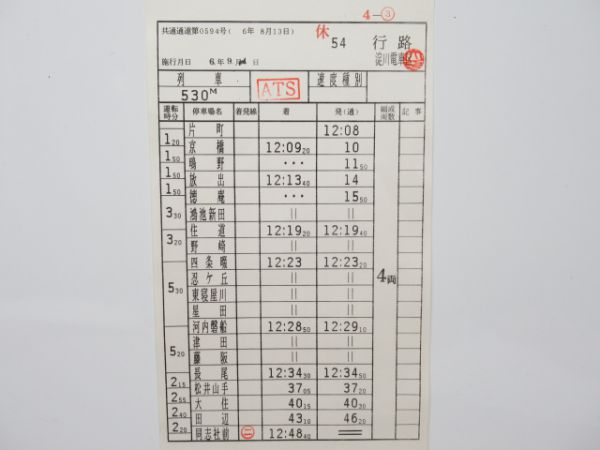 4-③
共通通達第0594号( 6年 8月13日)
休 54 行路
施行月日 6年9月 日
淀川電車区
列車 ATS 速度種別
530M
運転時分 停車場名 着発線 着 発(通) 編成両数 記事
片町 12:08
1 20
京橋 12:09 20 10
1 50
鴫野 ・・・ 11 50
1 50
放出 12:13 40 14
1 50
徳庵 ・・・ 15 50
3 30
鴻池新田 || ||
住道 12:19 20 12:19 40
3 20
野崎 || ||
四条畷 12:23 12:23 20
4両
忍ケ丘 || ||
5 30
東寝屋川 || ||
星田 || ||
河内磐船 12:28 50 12:29 10
津田 || ||
5 20
藤阪 || ||
長尾 12:34 30 12:34 50
2 15
松井山手 37 05 37 20
2 55
大住 40 15 40 30
2 40
田辺 43 10 46 20
2 20
同志社前 ㊁ 12:48 40 ══